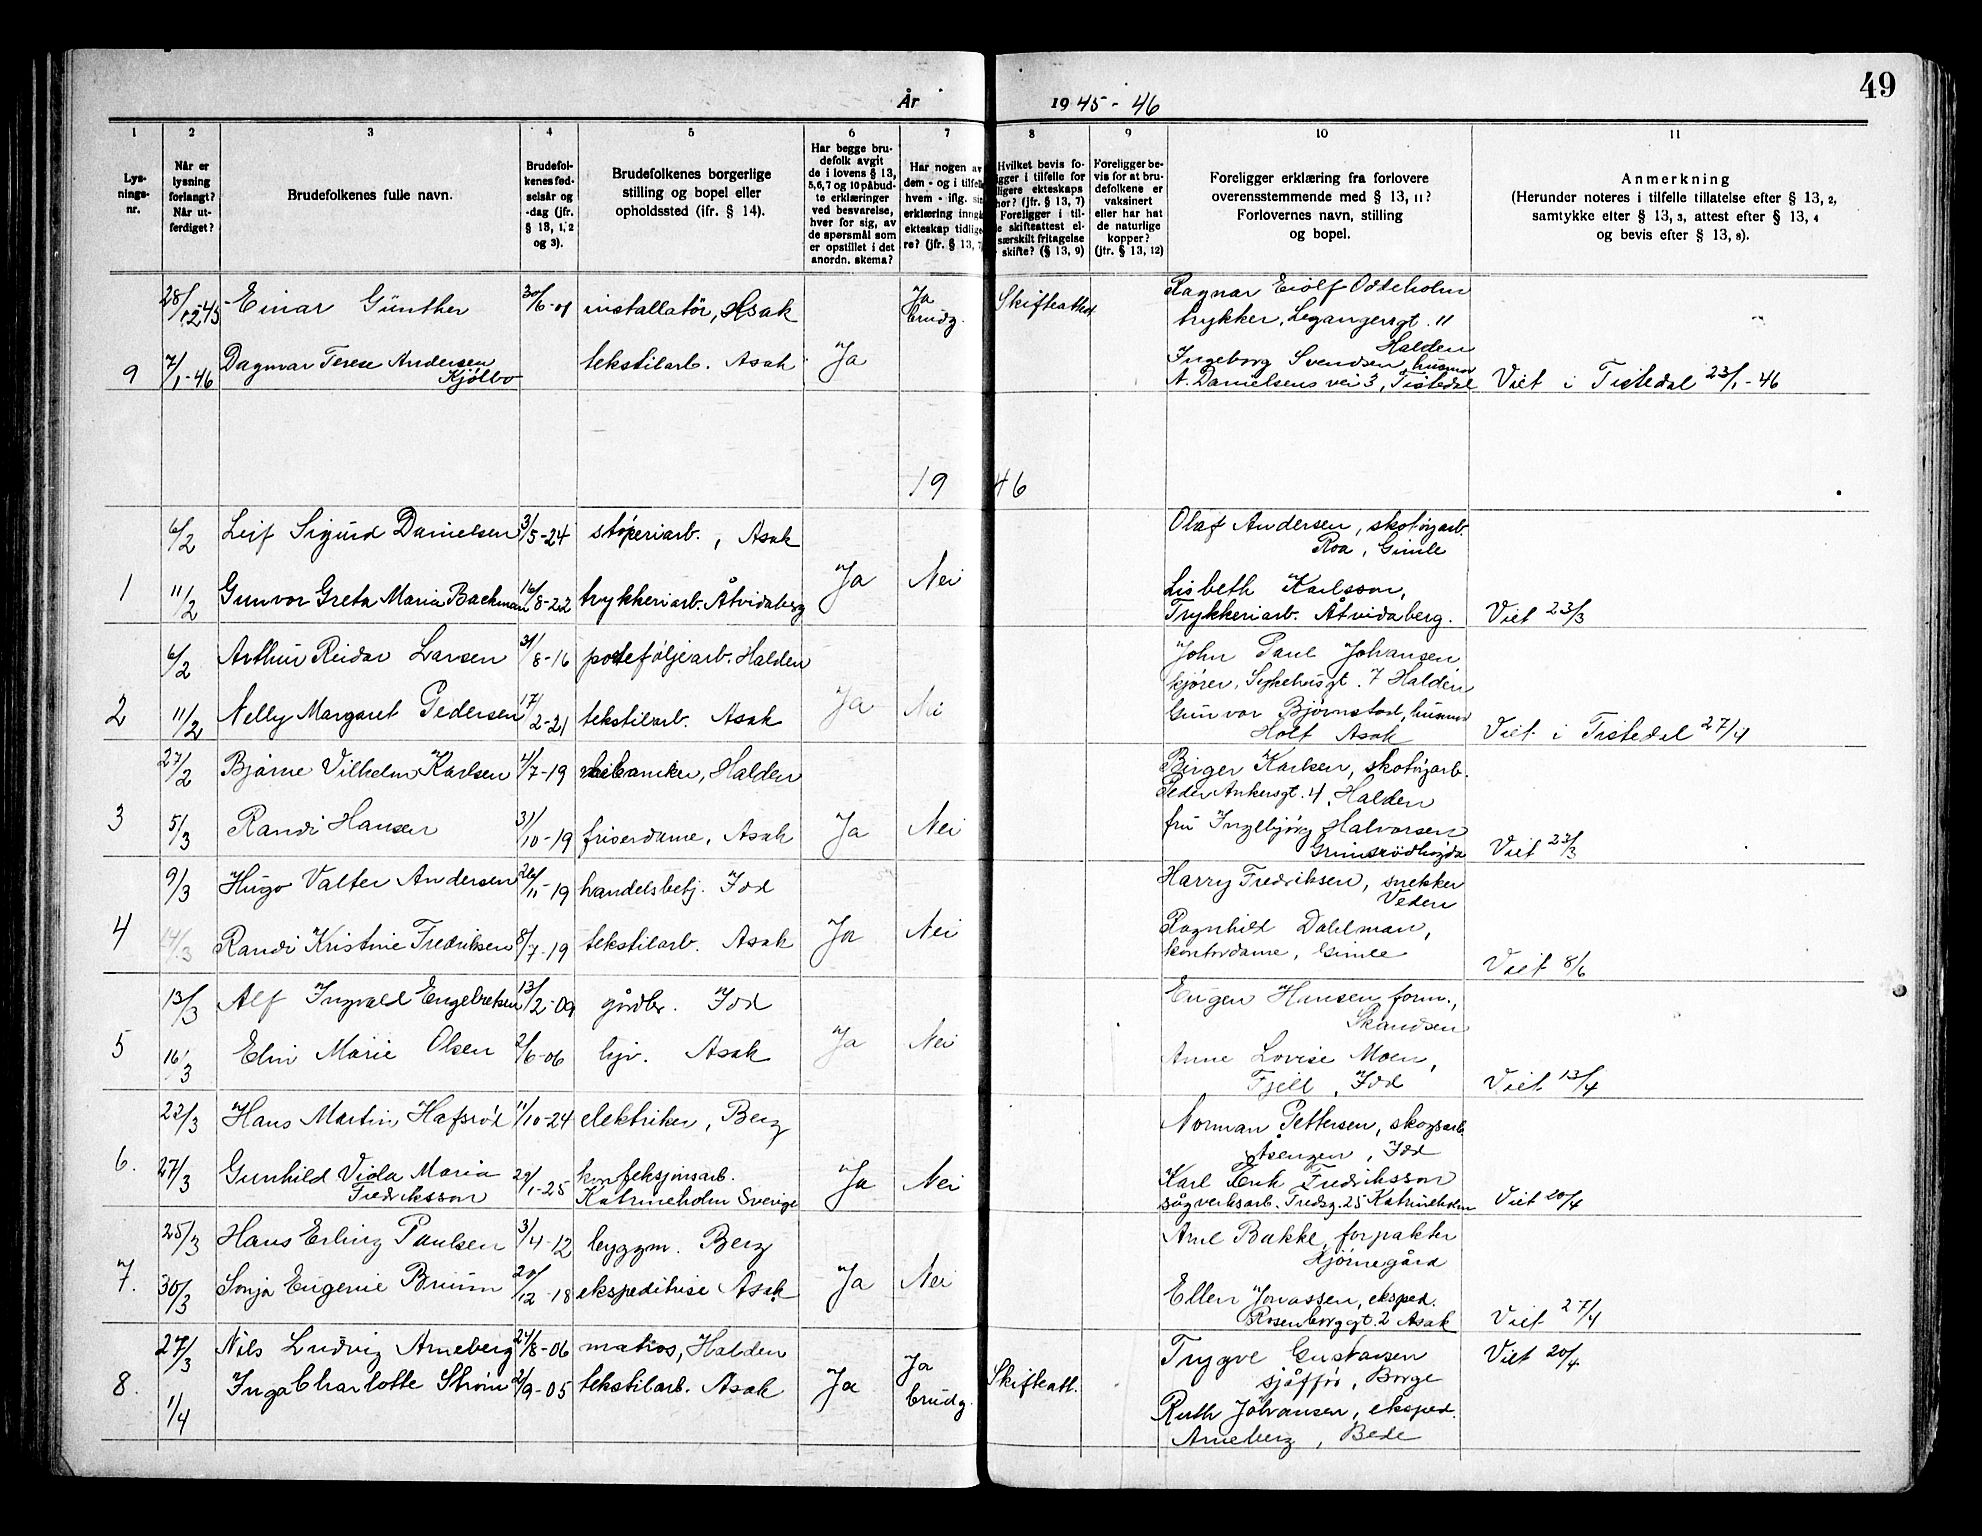 49
År 1945-46
1 2 3 4 5 6 7 8 9 10 11
Lys-
nings-
nr.
Når er
lysning
forlangt?
Når ut-
ferdiget?
Brudefolkenes fulle navn.
Brudefol-
kenes fød-
selsår og
-dag (jfr.
§ 13, 1, 2
og 3).
Brudefolkenes borgerlige
stilling og bopel eller
opholdssted (ifr. § 14).
Har begge bru-
defolk avgit
de i lovens § 13,
5,6,7 og 10 påbud-
te erklæringer
ved besvarelse,
hver for sig, av
de spørsmål som
er opstillet i det
anordn. skema?
Har nogen av
dem - og i tilfelle
hvem - iflg. sin
erklæring inngå
ekteskap tidlige
re? (jfr. § 13, 7
Hvilket bevis fo-
igger i tilfelle for
ligere ekteskaps
hør? (jfr. § 13, 7)
Foreligger i til-
e skifteattest el-
særskilt fritagelse
skifte? (§ 13, 9)
Foreligger be-
vis for at bru-
defolkene er
vaksinert
eller har hat
de naturlige
kopper?
(jfr. § 13, 12)
Foreligger erklæring fra forlovere
overensstemmende med § 13, 11?
Forlovernes navn, stilling
og bopel.
Anmerkning
(Herunder noteres i tilfelle tillatelse efter § 13, 2,
samtykke efter § 13, 3, attest efter § 13, 4
og bevis efter § 13, 8).
28/12-45 Einar Günther 30/6-01 installatør, Asak Ja brudg. Skifteattest Ragnar Eiolf Oddeholm
trykker, Legangersgt. 11
Halden
9 7/1-46 Dagmar Terese Andersen
Kjølbo tekstilarb. Asak Ja Ingeborg Svendsen, husmor
A. Danielsens vei 3, Tistedal Viet i Tistedal 23/1-46
1946
6/2 Leif Sigurd Danielsen 3/5-24 støperiarb., Asak Olaf Andersen, skotøyarb.
Roa, Gimle
1 11/2 Gunvor Greta Maria Backman 16/8-22 trykkeriarb. Åtvidaberg Ja Nei Lisbeth Karlsson,
Trykkeriarb. Åtvidaberg. Viet 23/3
6/2 Arthur Reidar Larsen 31/8-16 porteføljearb. Halden John Paul Johansen
kjører, Sykehusgt. 7 Halden
2 11/2 Nelly Margaret Pedersen 17/2-21 tekstilarb. Asak Ja Nei Gunvor Bjørnstad, husmor
Holt Asak Viet i Tistedal 27/4
27/2 Bjarne Vilhelm Karlsen 4/7-19 mekaniker, Halden Birger Karlsen, skotøyarb.
Peder Ankersgt. 4, Halden
3 5/3 Randi Hansen 31/10-19 friserdame, Asak Ja Nei fru Ingebjørg Halvorsen
Grimsrødhøgda Viet 23/3
9/3 Hugo Valter Andersen 26/11-19 handelsbetj. Idd Harry Fredriksen, snekker
Veden
4 14/3 Randi Kristine Fredriksen 8/7-19 tekstilarb. Asak Ja Nei Ragnhild Dahlman,
kontordame, Gimle Viet 8/6
13/3 Alf Ingvald Engebretsen 13/2-09 gårdbr. Idd Eugen Hansen form.,
Skansen
5 16/3 Elin Marie Olsen 2/6-06 hjv. Asak Ja Nei Anne Lovise Moen,
Fjell, Idd Viet 13/4
23/3 Hans Martin Hafsrød 11/10-24 elektriker, Berg Norman Pettersen, skogsarb.
Åsengen, Idd
6. 27/3 Gunhild Viola Maria
Fredriksson 29/1-25 konfeksjonsarb.
Katrineholm Sverige Ja Nei Karl Erik Fredriksson
sågverksarb. Fredsg. 25 Katrineholm Viet 20/4
25/3 Hans Erling Paulsen 3/4-12 byggm. Berg Arne Bakke, forpakter
Hjørnegård
7. 30/3 Sonja Eugenie Bruun 20/12-18 ekspeditrise Asak Ja Nei Ellen Jonassen, eksped.
Rosenborggt. 2 Asak Viet 27/4
27/3 Nils Ludvig Arneberg 24/8-06 matros, Halden Trygve Gustavsen
sjåfør, Borge Viet 20/4
8. 1/4 Inga Charlotte Strøm 2/9-05 tekstilarb. Asak Ja Ja brudg. Skifteatt. Ruth Johansen, eksped.
Arneberg, Bede